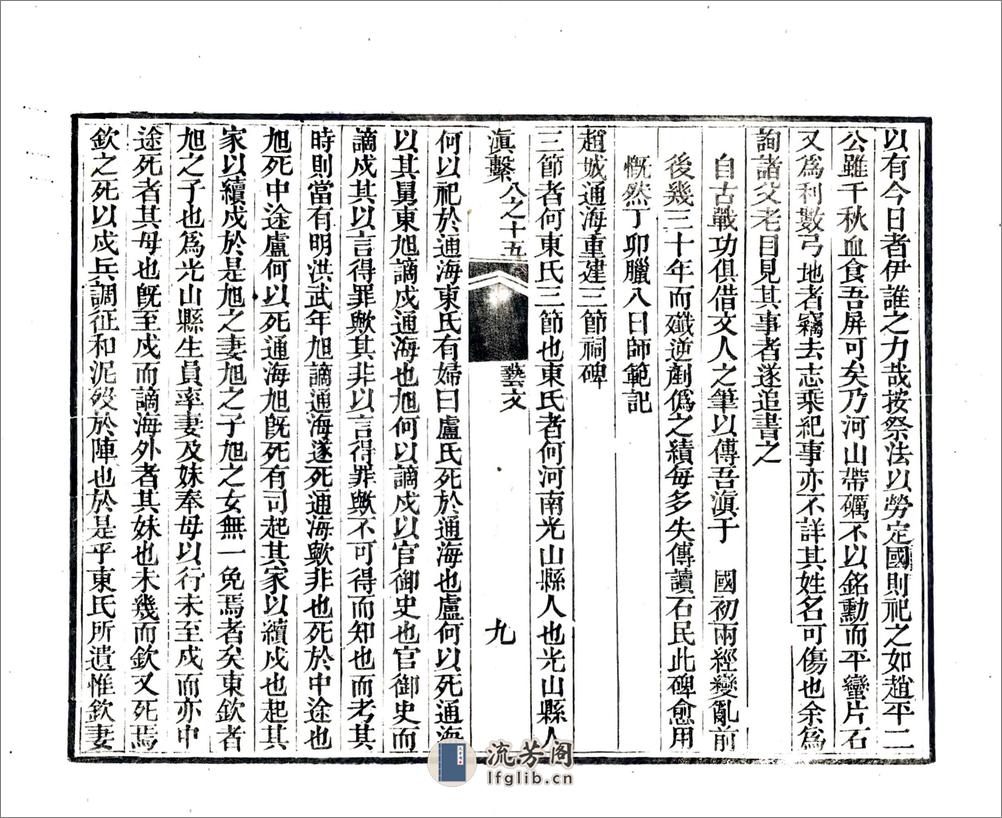 以有今日者伊誰之力哉按祭法以勞定國則祀之如趙平二
公雖千秋血食吾屏可矣乃河山帶礪不以銘勳而平蠻片石
又爲利數弓地者竊去志乘紀事亦不詳其姓名可傷也余爲
詢諸父老目見其事者遂追書之
自古戰功俱借文人之筆以傳吾滇于 國初兩經變亂前
後幾三十年而殲逆剷僞之績每多失傳讀石民此碑愈用
慨然丁卯臘八日師範記
趙城通海重建三節祠碑
三節者何東氏三節也東氏者何河南光山縣人也光山縣人
滇繫 八之十五 藝文 九
何以祀於通海東氏有婦曰盧氏死於通海也盧何以死通海
以其舅東旭謫戍通海也旭何以謫戍以官御史也官御史而
謫戍其以言得罪歟其非以言得罪歟不可得而知也而考其
時則當有明洪武年旭謫通海遂死通海歟非也死於中途也
旭死中途盧何以死通海旭旣死有司起其家以續戍也起其
家以續戍於是旭之妻旭之子旭之女無一免焉者矣東欽者
旭之子也爲光山縣生員率妻及妹奉母以行未至戍而亦中
途死者其母也旣至戍而謫海外者其妹也未幾而欽又死焉
欽之死以戍兵調征和泥歿於陣也於是乎東氏所遺惟欽妻
流芳阁
lfglib.cn